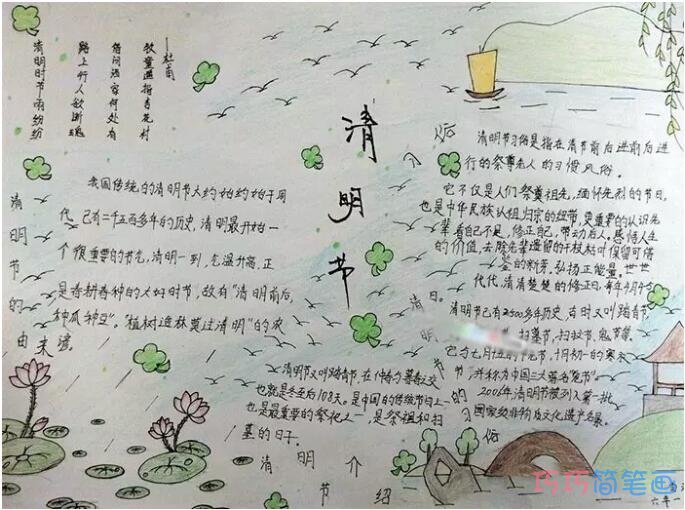 清明时节雨纷纷
路上行人欲断魂
借问酒家何处有
牧童遥指杏花村
——杜甫
清明节
清明节的由来
我国传统的清明节大约始约始于周
代,己有二千五百多年的历史,清明最开始一
个很重要的节气,清明一到,气温升高,正
是春耕春种的大好时节,故有“清明前后,
种瓜种豆”。“植树造林莫过清明”的农
清明节介绍
清明节又叫踏青节,在仲春与暮春之交
也就是冬至后108天。是中国的传统节日之一
也是最重要的祭祀之一,是祭祖和扫
墓的日子。
清明节的习俗
清明节习俗是指在清节前后进前后进
行的祭尊老人的习惯风俗。
它不仅是人们祭奠祖先,缅怀先烈的节日,
也是中华民族认祖归宗的纽带,更重要的认识先
辈看自己不是,修正自己,带动后人,感悟人生
的价值,去除先辈遗留的干枝枯叶保留可借
鉴的新芽,弘扬正能量,世世
代代,清清楚楚的修正日。每年4月4日
清日。
清明节己有2500多年历史,有时又叫踏青节
扫墓节,扫坟节、鬼节等。
它与七月十五的中元节,十月初一的寒衣
节“并称为中国三大著名鬼节”
2006年,清明节被列入第一批
国家级非物质文化遗产名录。
巧巧简笔画
六年一